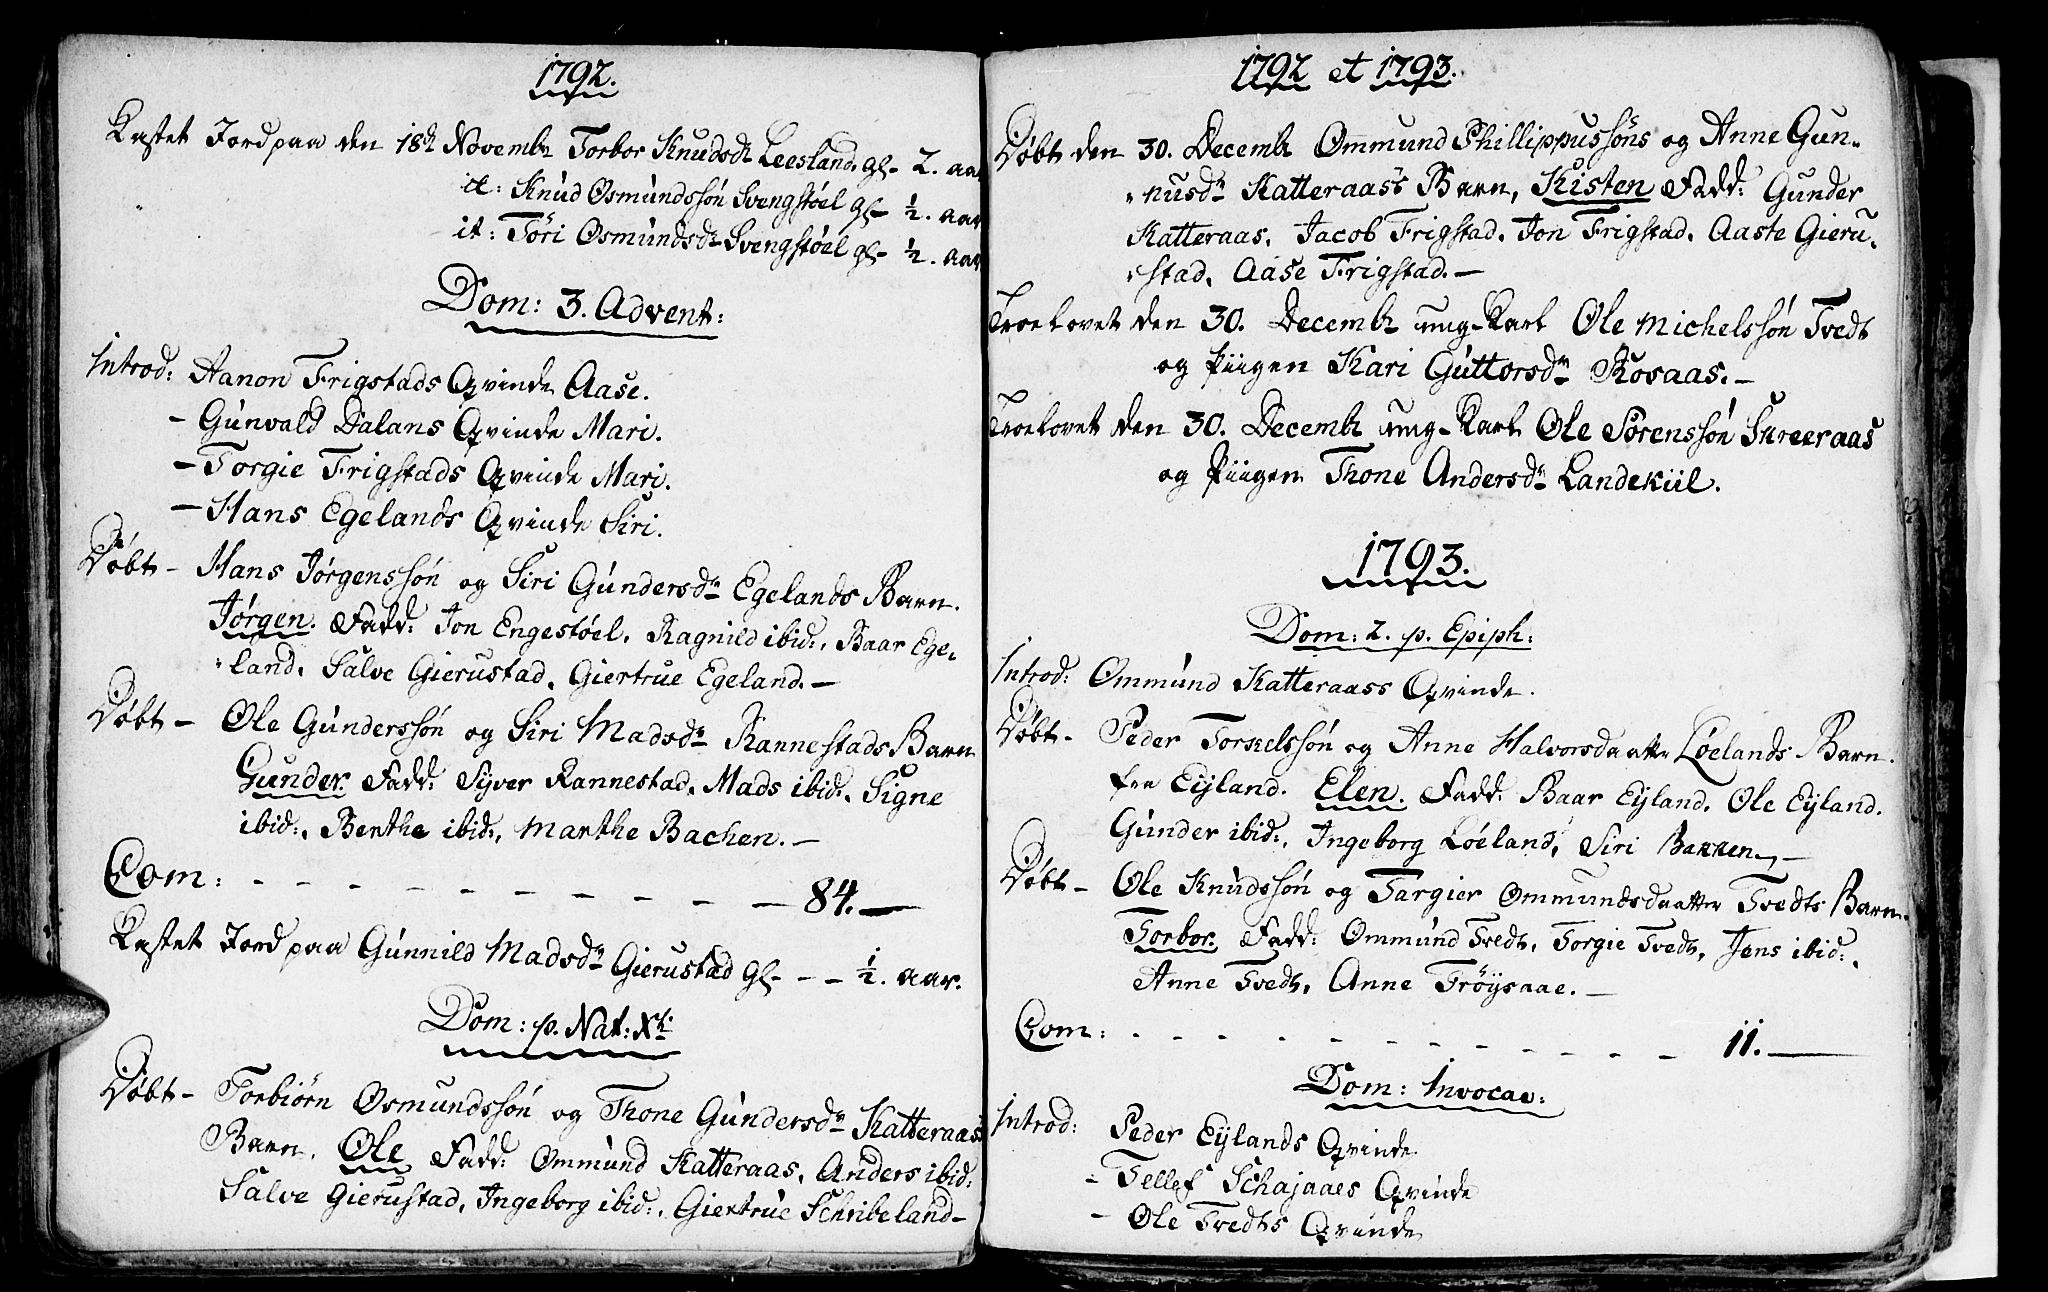 1792.
Kastet Jord paa den 18de Novembr Torbor Knudsdr Leesland. gl- 2. aar
it: Knud Osmundssøn Svengstøel gl- ½. aar
it: Töri Osmundsdr Svengstøel gl- ½. aar
Dom: 3. Advent:
Introd: Aanon Frigstads Qvinde Aase.
- Gunvald Dalans Qvinde Mari.
- Torgie Frigstads Qvinde Mari.
- Hans Egelands Qvinde Siri.
Døbt - Hans Jørgenssøn og Siri Gundersdr Egelands Barn.
Jørgen. Fadd: Jon Engestøel, Ragnild ibid:, Baar Ege-
land, Salve Gierustad, Giertrue Egeland. -
Døbt - Ole Gunderssøn og Siri Madsdr Rannestads Barn
Gunder. Fadd: Syver Rannestad, Mads ibid:, Signe
ibid:, Berthe ibid:, Marthe Bachen. -
Com: - - - - - - - - - - 84. -
Kastet Jord paa Gunnild Madsdr Gierustad gl- - - ½. aar.
Dom: p. Nat: Xti:
Døbt - Torbiørn Osmundssøn og Thone Gundersdr Katteraas
Barn. Ole Fadd: Ommund Katteraas, Anders ibid:
Salve Gierustad, Ingeborg ibid:, Giertrue Schribeland-
1792 et 1793.
Døbt den 30. Decembr Ommund Phillippussøns og Anne Gun-
nusdr Katteraas's Barn, Kisten Fadd: Gunder
Katteraas, Jacob Frigstad, Jon Frigstad, Aaste Gieru-
stad, Aase Frigstad. -
Troelovet den 30. Decembr ung-Karl Ole Michelssøn Tvedt
og Piigen Kari Guttorsdr Rosaas. -
Troelovet den 30. Decembr ung-Karl Ole Sørenssøn Skreeraas
og Piigen Thone Andersdr Landekiil.
1793.
Dom: 2. p. Epiph:
Introd: Ommund Katteraass Qvinde.
Døbt - Peder Torkelssøn og Anne Halvorsdaatter Løelands Barn.
fra Eyland. Elen. Fadd: Baar Eyland, Ole Eyland.
Gunder ibid:, Ingeborg Løeland, Siri Bakken, -
Døbt - Ole Knudssøn og Targier Ommundsdaatter Tvedts Barn.
Torbor. Fadd: Ommund Tvedt, Torgie Tvedt, Jens ibid:,
Anne Tvedt, Anne Trøysaae. -
Com: - - - - - - - - - - - - 11. -
Dom: Invocav:
Introd: Peder Eylands Qvinde
- Tellef Schajaaes Qvinde
- Ole Tvedts Qvinde